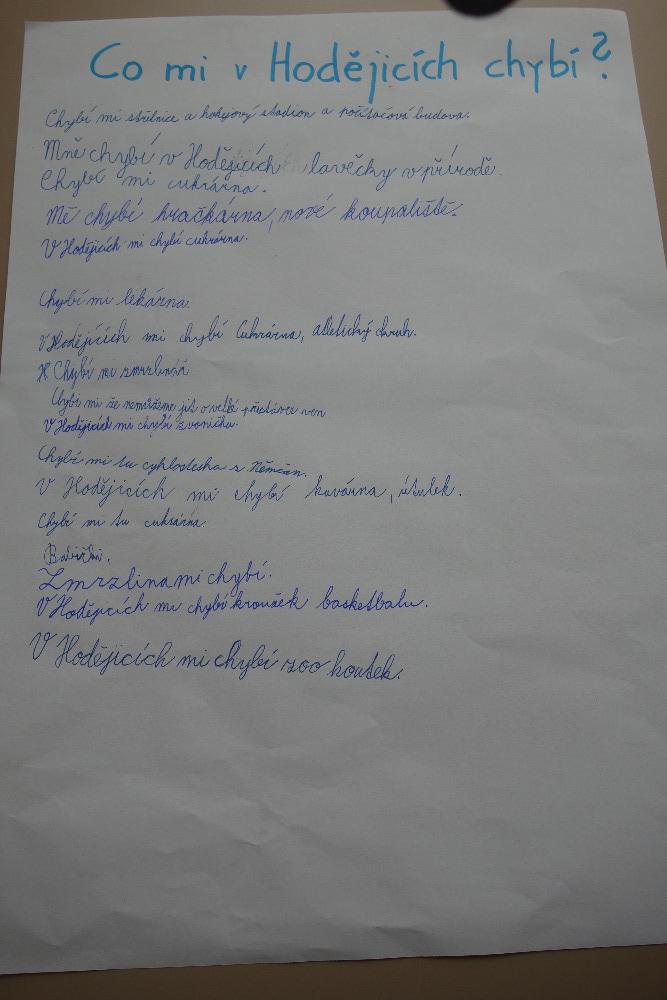 Co mi v Hodějicích chybí?
Chybí mi střelnice a hokejový stadion a počítačová budova.
Mně chybí v Hodějicích lavečky v přírodě.
Chybí mi cukrárna.
Mě chybí hračkárna, nové koupaliště.
V Hodějicích mi chybí cukrárna.
Chybí mi lékárna.
V Hodějicích mi chybí Cukrárna, atletický kruh.
Chybí mi zmrzlinář
Chybí mi že nemůžeme jít o velké přestávce ven
V Hodějicích mi chybí zvonička.
Chybí mi tu cyklostezka s Němčan.
V Hodějicích mi chybí kavárna, útulek.
Chybí mi tu cukrárna.
Zmrzlina mi chybí.
V Hodějicích mi chybí kroužek basketbalu.
V Hodějicích mi chybí zoo koutek.